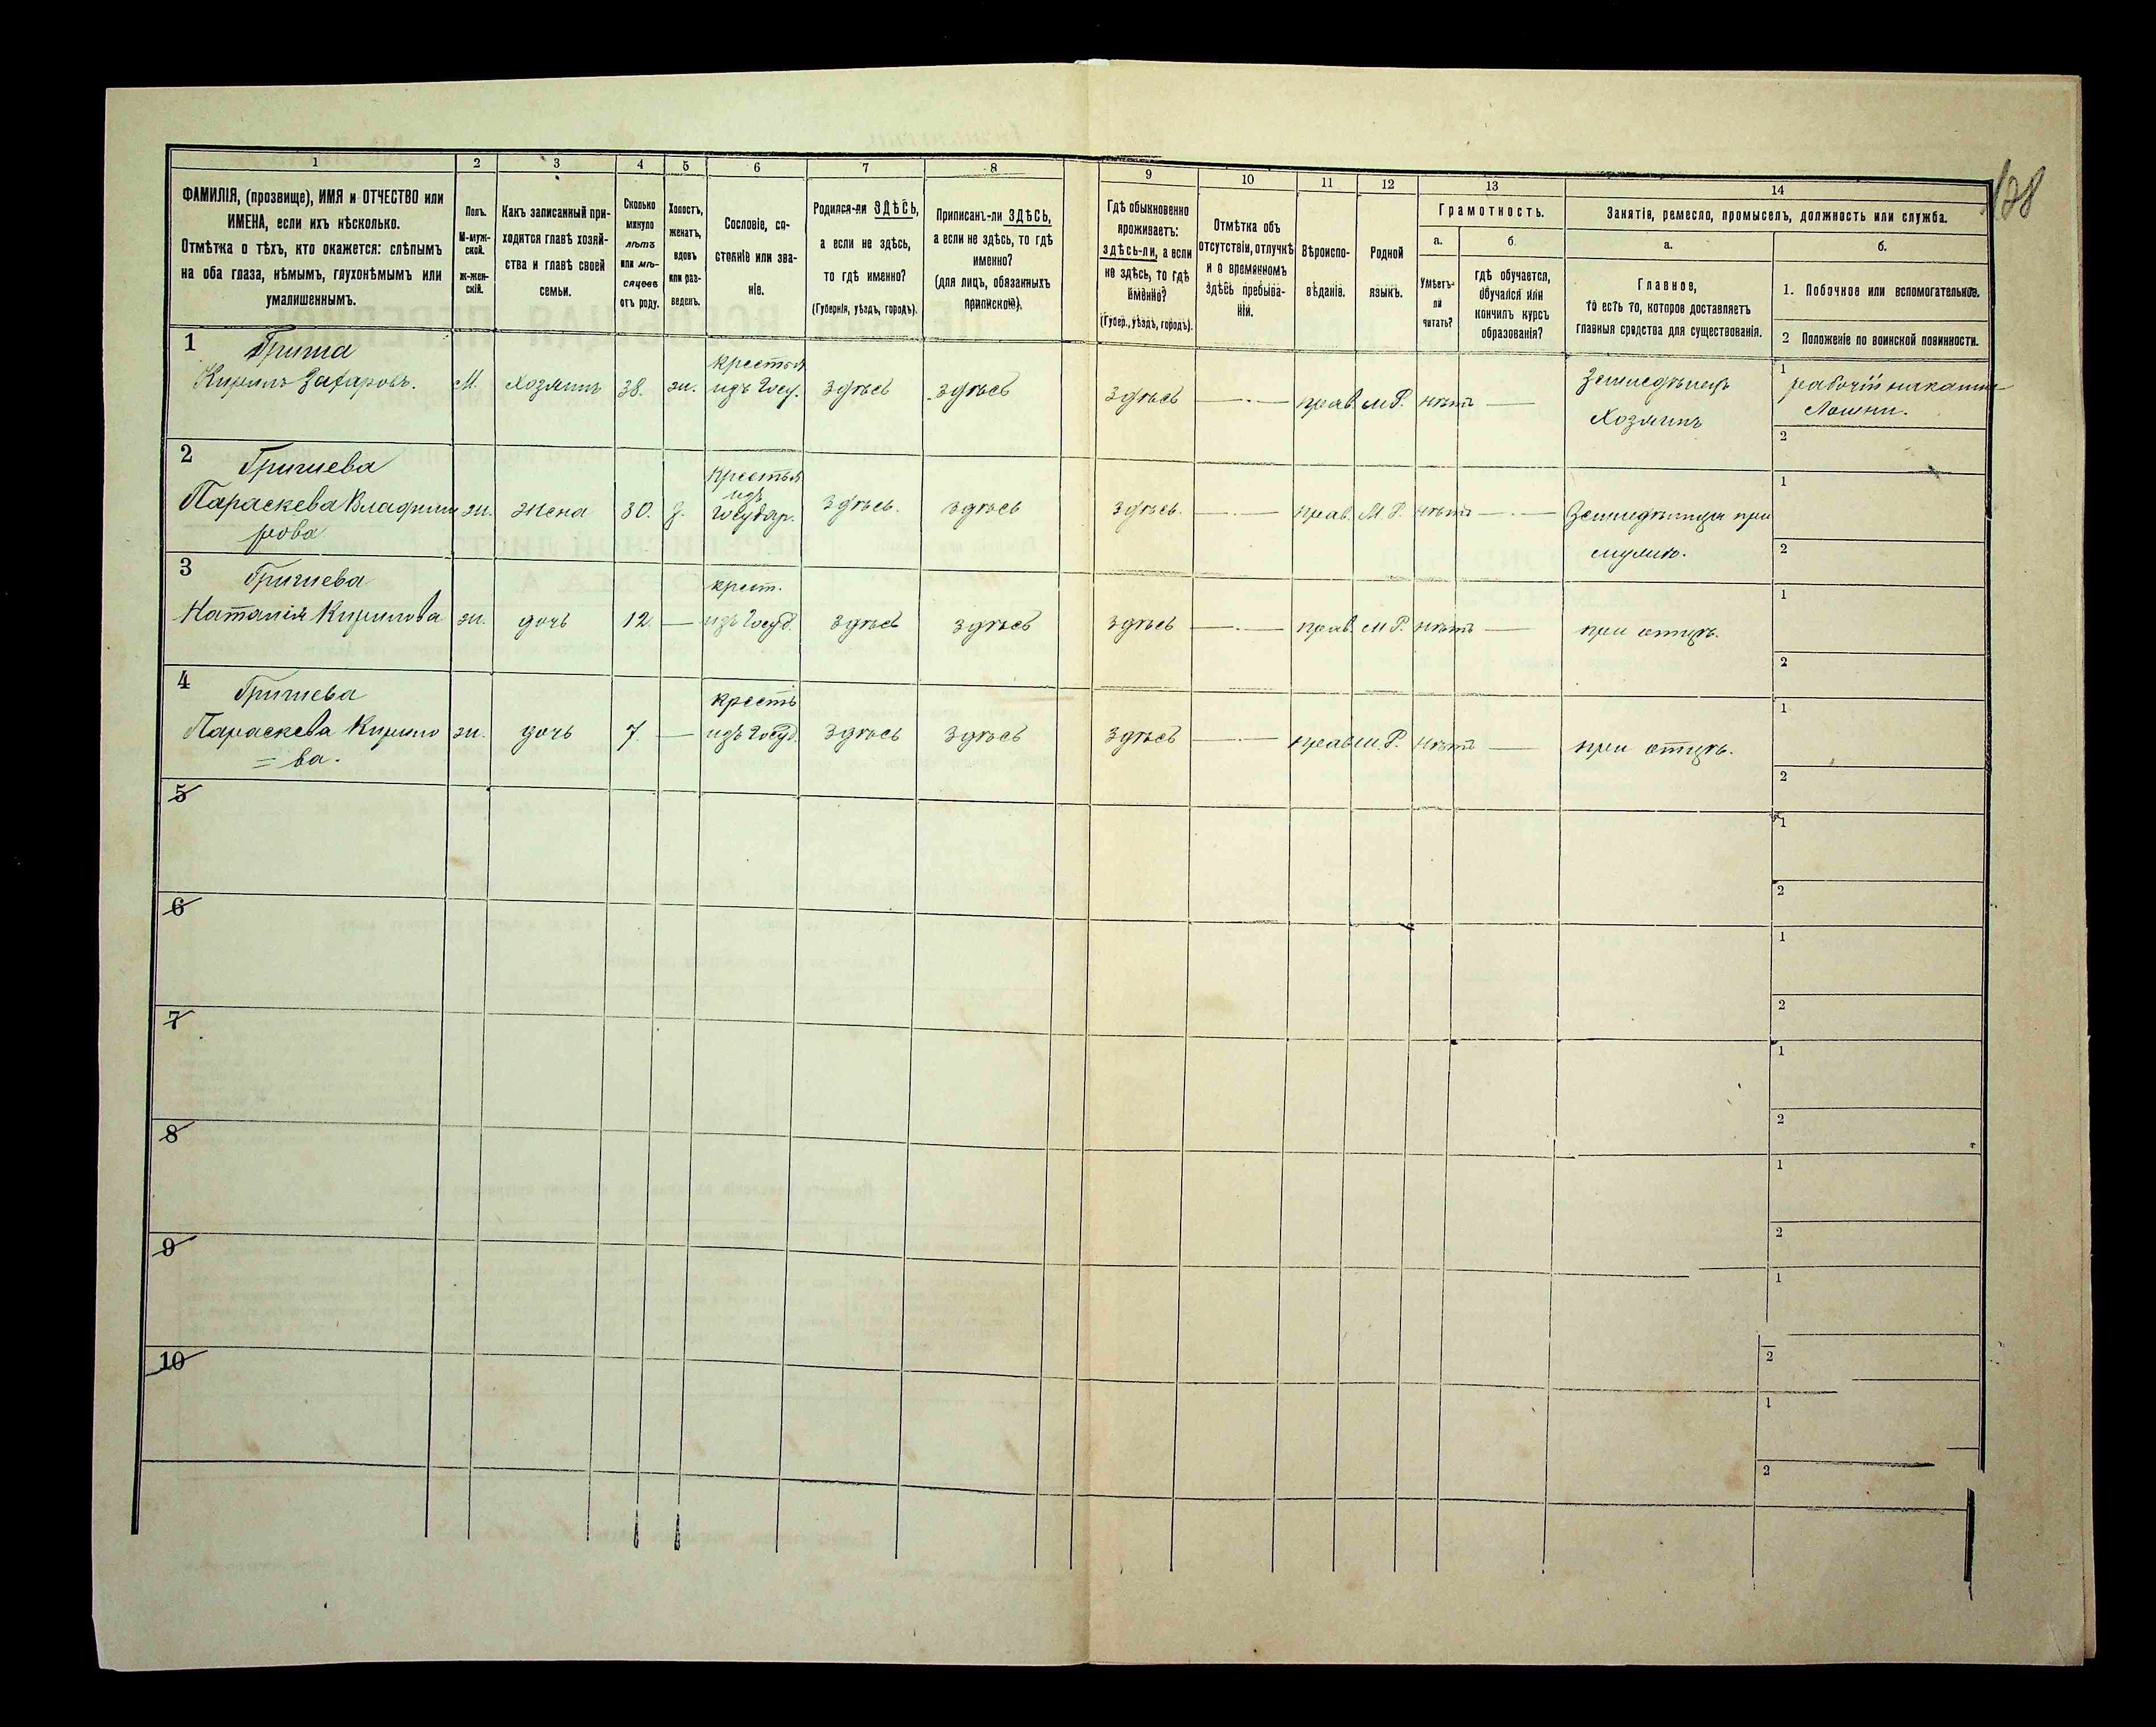 128
1 2 3 4 5 6 7 8 9 10 11 12 13 14
ФАМИЛІЯ, (прозвище), ИМЯ и ОТЧЕСТВО или
ИМЕНА, если ихъ нѣсколько.
Отмѣтка о тѣхъ, кто окажется: слѣпымъ
на оба глаза, нѣмымъ, глухонѣмымъ или
умалишеннымъ.
Полъ.
М-муж-
ской.
ж-жен-
скій.
Какъ записанный при-
ходится главѣ хозяй-
ства и главѣ своей
семьи.
Сколько
минуло
лѣтъ
или мѣ-
сяцевъ
отъ роду.
Холостъ,
женатъ,
вдовъ
или раз-
веденъ.
Сословіе, со-
стояніе или зва-
ніе.
Родился-ли ЗДѢСЬ,
а если не здѣсь,
то гдѣ именно?
(Губернія, уѣздъ, городъ).
Приписанъ-ли ЗДѢСЬ,
а если не здѣсь, то гдѣ
именно?
(для лицъ, обязанныхъ
припискою).
Гдѣ обыкновенно
проживаетъ:
здѣсь-ли, а если
не здѣсь, то гдѣ
именно?
(Губер., уѣздъ, городъ).
Отмѣтка объ
отсутствіи, отлучкѣ
и о временномъ
здѣсь пребыва-
ніи.
Вѣроиспо-
вѣданіе.
Родной
языкъ.
Грамотность.
а.
Умѣетъ-
ли
читать?
б.
гдѣ обучается,
обучался или
кончилъ курсъ
образованія?
Занятіе, ремесло, промыселъ, должность или служба.
а.
Главное,
то есть то, которое доставляетъ
главныя средства для существованія.
б.
1. Побочное или вспомогательное.
2 Положеніе по воинской повинности.
1 Гриша
Кирилъ Захаровъ. М. Хозяинъ 38. ж. крестья изъ Госу. здѣсь здѣсь здѣсь —.— прав. М Р. нѣтъ — Земледѣлецъ
Хозяинъ
1 рабочій
2
2 Гришева
Параскева Владими ж. жена 30. З. Крестья изъ Государ. здѣсь. здѣсь здѣсь. —.— прав. М Р. нѣтъ —.— Земледѣлица при
рова
мужѣ.
1
2
3 Гришева
Наталія Кирилова ж. дочь 12. — крест. изъ Госуд. здѣсь здѣсь здѣсь —.— прав. М Р. нѣтъ — при отцѣ.
1
2
4 Гришева
Параскева Кирило ж. дочь 7. — кресть изъ Госуд. здѣсь здѣсь здѣсь —.— прав М. Р. нѣтъ — при отцѣ.
= ва.
1
2
5
1
2
6
1
2
7
1
2
8
1
2
9
1
2
10
1
2